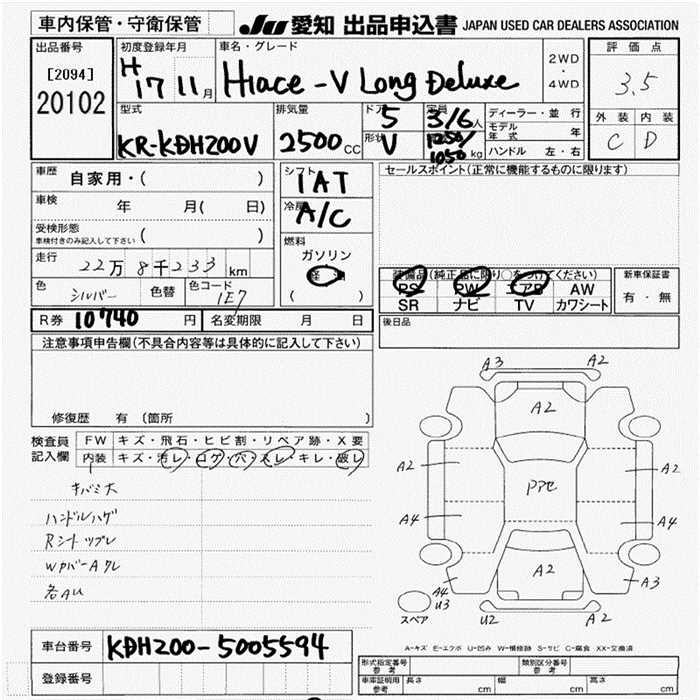 車内保管・守衛保管
JU 愛知 出品申込書 JAPAN USED CAR DEALERS ASSOCIATION
出品番号
[2094]
20102
初度登録年月
H 17 11 月
車名・グレード
Hiace - V Long Deluxe
2WD
・
4WD
評価点
3.5
外装 内装
C D
型式
KR-KDH200V
排気量
2500 CC
ドア
5
形状
V
定員
3/6 人
1250/
1050 kg
ディーラー・並行
モデル年式 年
ハンドル 左・右
車歴 自家用・( )
車検 年 月( 日)
受検形態
車検付きのみ記入して下さい ( )
走行 22万8千233 km
色 シルバー 色替 色コード 1E7
シフト
IAT
冷房
A/C
燃料
ガソリン
軽油
( )
セールスポイント(正常に機能するものに限ります)
装備品(純正品に限り○をつけてください)
PS PW エアB AW
SR ナビ TV カワシート
新車保証書
有・無
R券 10740 円 名変期限 月 日
後日品
注意事項申告欄(不具合内容等は具体的に記入して下さい)
修復歴 有 (箇所 )
検査員
記入欄
FW キズ・飛石・ヒビ割・リペア跡・X要
内装 キズ・汚レ・コゲ・穴・スレ・キレ・破レ
キバミ大
ハンドルハゲ
Rシート ツブレ
WPバーAクレ
各AU
A3 A2
A2
A2 A2
PPセ
A4 A4
A2
A4 A3
U3
U2 A2
スペア
A-キズ E-エクボ U-凹み W-補修跡 S-サビ C-腐食 XX-交換済
車台番号 KDH200-5005594
登録番号
形式指定番号
参考
類別区分番号
参考
車庫証明用
参考
長さ cm 幅 cm 高さ cm